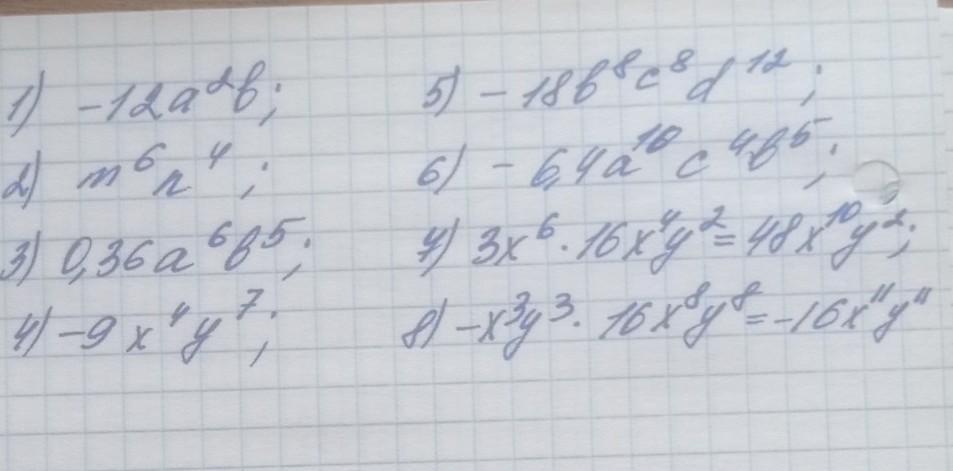 1) -12a²b;
2) m⁶n⁴;
3) 0,36a⁶b⁵;
4) -9x⁴y⁷;
5) -18b⁸c⁸d¹²;
6) -6,4a¹⁰c⁴b⁵;
7) 3x⁶·16x⁴y²=48x¹⁰y²;
8) -x³y³·16x⁸y⁸=-16x¹¹y¹¹